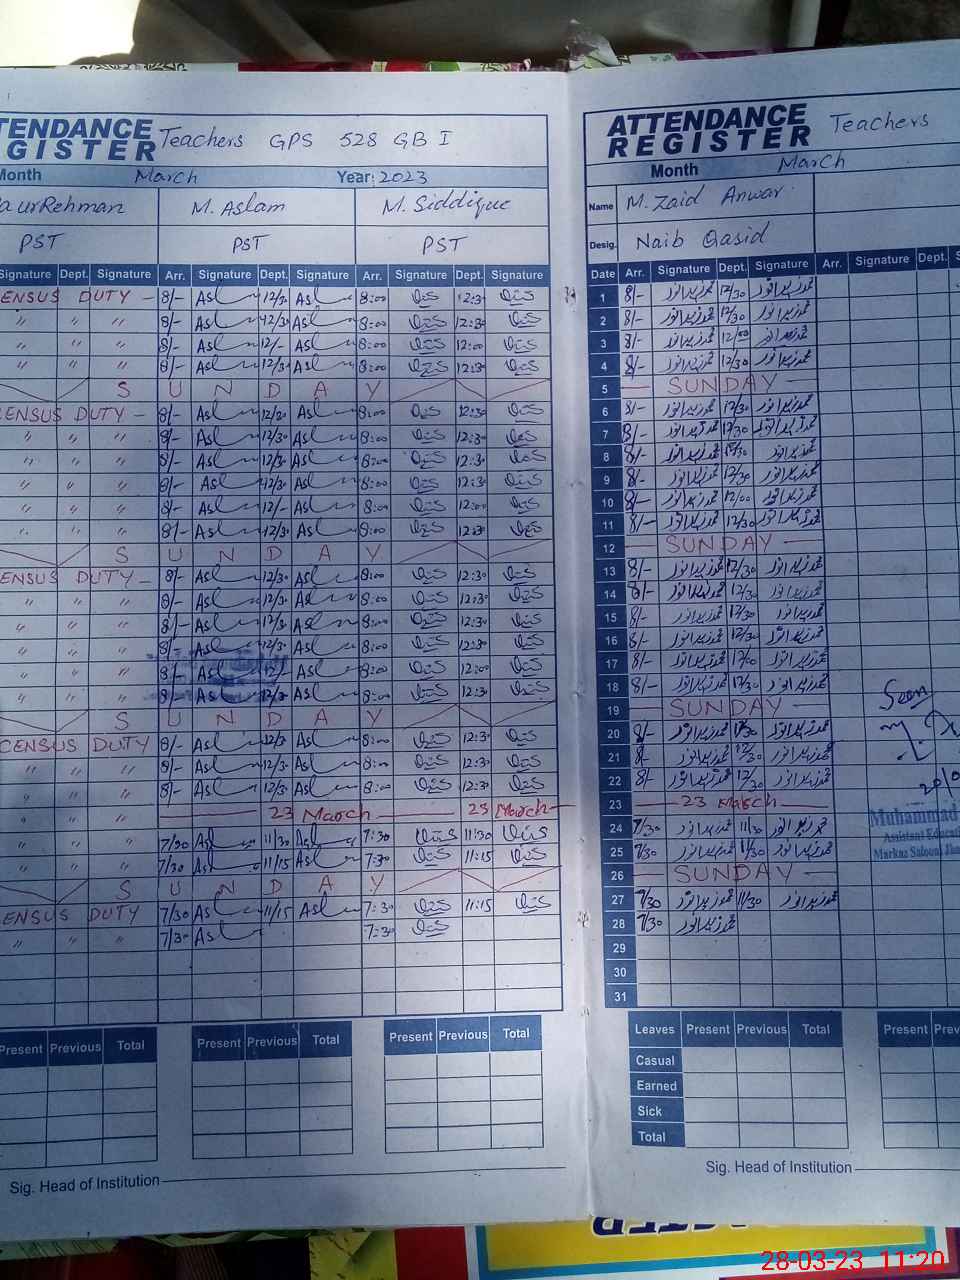 ATTENDANCE
REGISTER Teachers GPS 528 GB I
Month March Year: 2023
urRehman M. Aslam M. Siddique
PST PST PST
Signature Dept. Signature Arr. Signature Dept. Signature Arr. Signature Dept. Signature
CENSUS DUTY — 8/- 12/30 8:00 12:30
" " " 8/- 12/30 8:00 12:30
" " " 8/- 12/- 8:00 12:00
" " " 8/- 12/30 8:00 12:30
S U N D A Y
CENSUS DUTY — 8/- 12/30 8:00 12:30
" " " 8/- 12/30 8:00 12:30
" " " 8/- 12/30 8:00 12:30
" " " 8/- 12/30 8:00 12:30
" " " 8/- 12/- 8:00 12:00
" " " 8/- 12/30 8:00 12:30
S U N D A Y
CENSUS DUTY — 8/- 12/30 8:00 12:30
" " " 8/- 12/30 8:00 12:30
" " " 8/- 12/30 8:00 12:30
" " " 8/- 12/30 8:00 12:30
" " " 8/- 12/- 8:00 12:00
" " " 8/- 12/30 8:00 12:30
S U N D A Y
CENSUS DUTY 8/- 12/30 8:00 12:30
" " " 8/- 12/30 8:00 12:30
" " " 8/- 12/30 8:00 12:30
" " " — 23 March — 23 March —
" " " 7/30 11/30 7:30 11:30
" " " 7/30 11/15 7:30 11:15
S U N D A Y
CENSUS DUTY 7/30 11/15 7:30 11:15
" " " 7/30 7:30
Present Previous Total Present Previous Total Present Previous Total
Sig. Head of Institution
ATTENDANCE
REGISTER Teachers
Month March
Name M. Zaid Anwar
Desig. Naib Qasid
Date Arr. Signature Dept. Signature Arr. Signature Dept. S
1 8/- محمد زید انور 12/30 محمد زید انور
2 8/- محمد زید انور 12/30 محمد زید انور
3 8/- محمد زید انور 12/00 محمد زید انور
4 8/- محمد زید انور 12/30 محمد زید انور
5 — SUNDAY —
6 8/- محمد زید انور 12/30 محمد زید انور
7 8/- محمد زید انور 12/30 محمد زید انور
8 8/- محمد زید انور 12/30 محمد زید انور
9 8/- محمد زید انور 12/30 محمد زید انور
10 8/- محمد زید انور 12/00 محمد زید انور
11 8/- محمد زید انور 12/30 محمد زید انور
12 — SUNDAY —
13 8/- محمد زید انور 12/30 محمد زید انور
14 8/- محمد زید انور 12/30 محمد زید انور
15 8/- محمد زید انور 12/30 محمد زید انور
16 8/- محمد زید انور 12/30 محمد زید انور
17 8/- محمد زید انور 12/00 محمد زید انور
18 8/- محمد زید انور 12/30 محمد زید انور
Seen
19 — SUNDAY —
20 8/- محمد زید انور 12/30 محمد زید انور
21 8/- محمد زید انور 12/30 محمد زید انور
22 8/- محمد زید انور 12/30 محمد زید انور
23 — 23 March —
Muhammad
24 7/30 محمد زید انور 11/30 محمد زید انور
Assistant Educati
25 7/30 محمد زید انور 11/30 محمد زید انور
Markaz
26 — SUNDAY —
27 7/30 محمد زید انور 11/30 محمد زید انور
28 7/30 محمد زید انور
29
30
31
Leaves Present Previous Total Present Prev
Casual
Earned
Sick
Total
Sig. Head of Institution
28-03-23 11:20